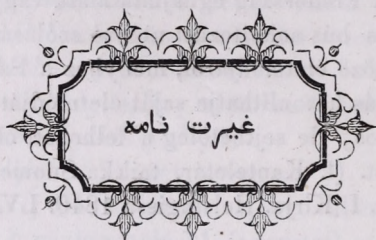 غيرت نامه